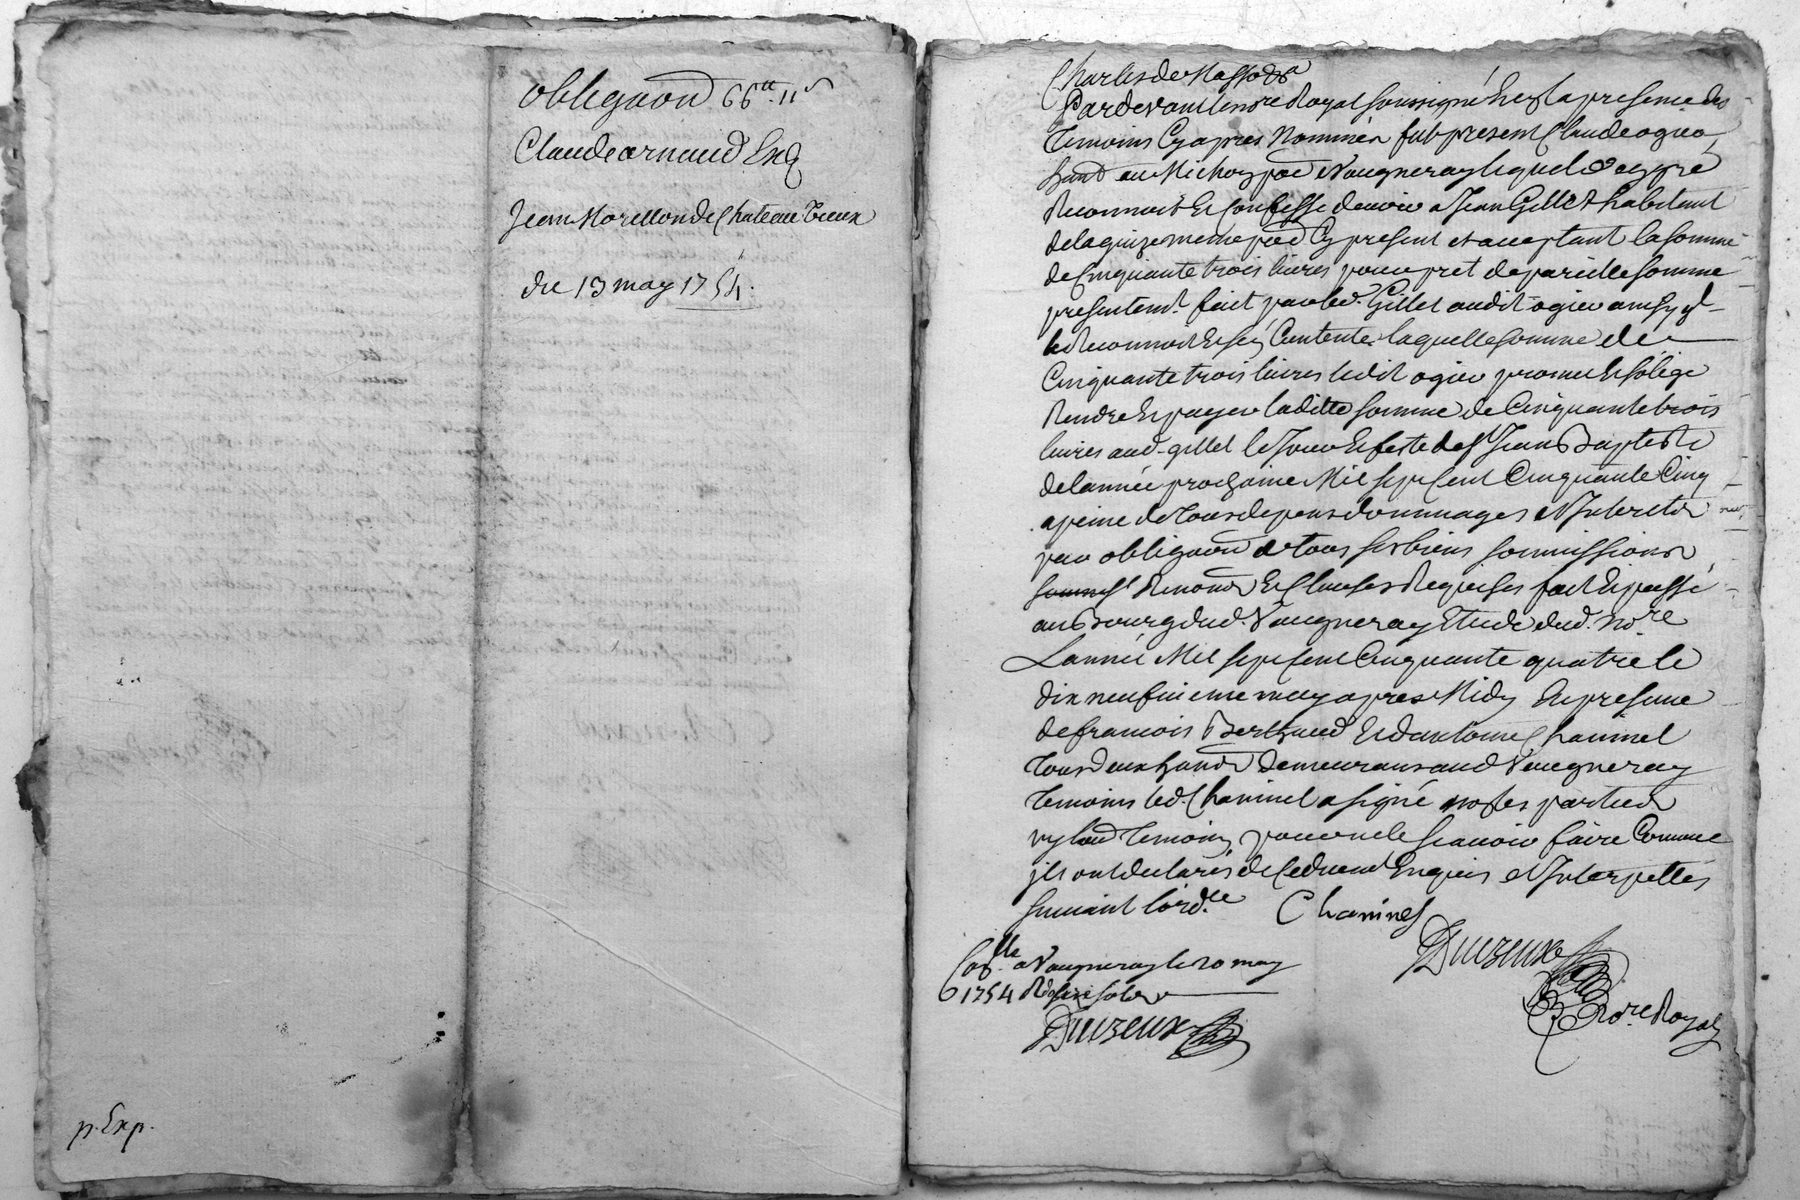 obligaon 66ᵗᵗ 11ˢ
Claude arnaud
Jean Morellon de Chateau vieux
du 13 may 1754.
p. Exp.
Charles de
Pardevant le nore Royal soussigné Et En la presence des
temoins Cy apres Nommés fut present Claude ogier
hant au Michon parr de Vaugneray lequel de gré
Reconnoit Et Confesse devoir a Jean Gillet habitant
de la meme parr Cy present et acceptant la somme
de Cinquante trois livres pour pret de pareille somme
presentemt fait par led. Gillet audit ogier ainsy qil
le Reconnoit Et sen Contente laquelle somme de
Cinquante trois livres ledit ogier promet Et soblige
Rendre Et payer laditte somme de Cinquante trois
livres aud. gillet le Jour Et feste de st Jean Baptiste
de lannée prochaine Mil sept Cent Cinquante Cinq
a peine de tous depens dommages et Interets
par obligaon de tous ses biens soumissions
Renons Et Clauses Requises fait Et passé
au Bourg dud. Vaugneray Etude dud. nore
Lannée Mil sept Cent Cinquante quatre le
dix neufvieme may apres Midy En presence
de francois Berthaud Et dantoine Chaminel
tous deux hants demeurans aud Vaugneray
temoins led. Chaminel a signé non les parties
ny laud temoin pour ne le scavoir faire Comme
ils ont declarés de Ce duemt Enquis et Interpellés
suivant lordce Chaminel
Duvzeuxe
nore Royal
a Vaugneray le 20 may
1754 Rd six sols
Duvzeux